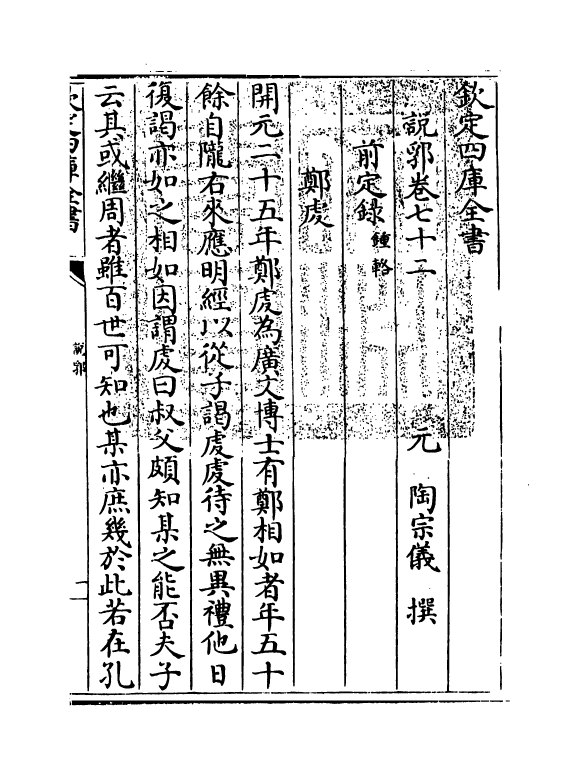 欽定四庫全書
說郛卷七十二
元　陶宗儀　撰
前定錄 鍾輅
鄭虔
開元二十五年鄭虔為廣文博士有鄭相如者年五十
餘自隴右來應明經以從子謁虔虔待之無異禮他日
復謁亦如之相如因謂虔曰叔父頗知某之能否夫子
云其或繼周者雖百世可知也某亦庶幾於此若在孔
欽定四庫全書
說郛